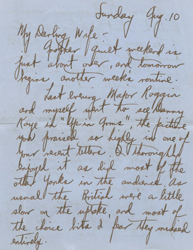 Sunday Aug. 10
My Darling Wife:-
Another quiet weekend is
just about over, and tomorrow
begins another week's routine.
Last evening Major Roggin
and myself went to see Danny
Kaye in "Up in Arms" the picture
you praised so highly in one of
your recent letters. I thoroughly
enjoyed it as did most of the
other Yanks in the audience. As
usual the British were a little
slow on the uptake, and most of
the choice bits of humor they missed
entirely.